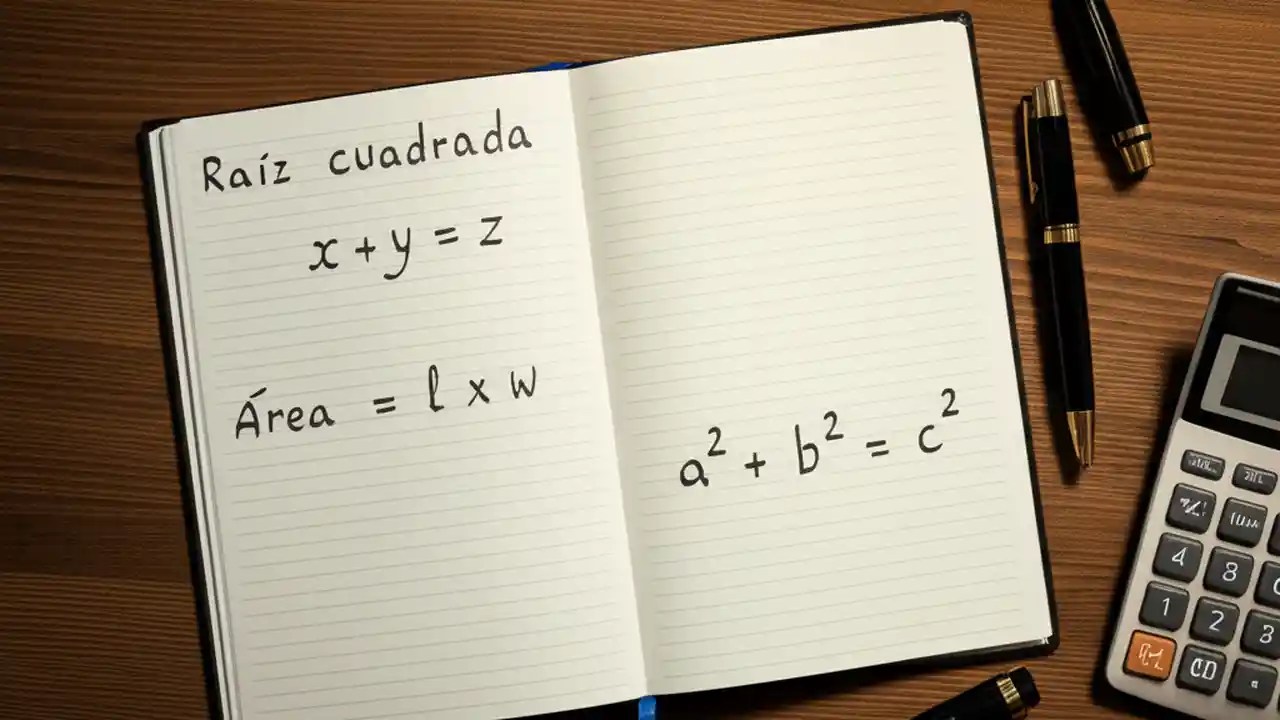 Raíz cuadrada
x + y = z
Área = l x w
a² + b² = c²
4
8
1
2
3